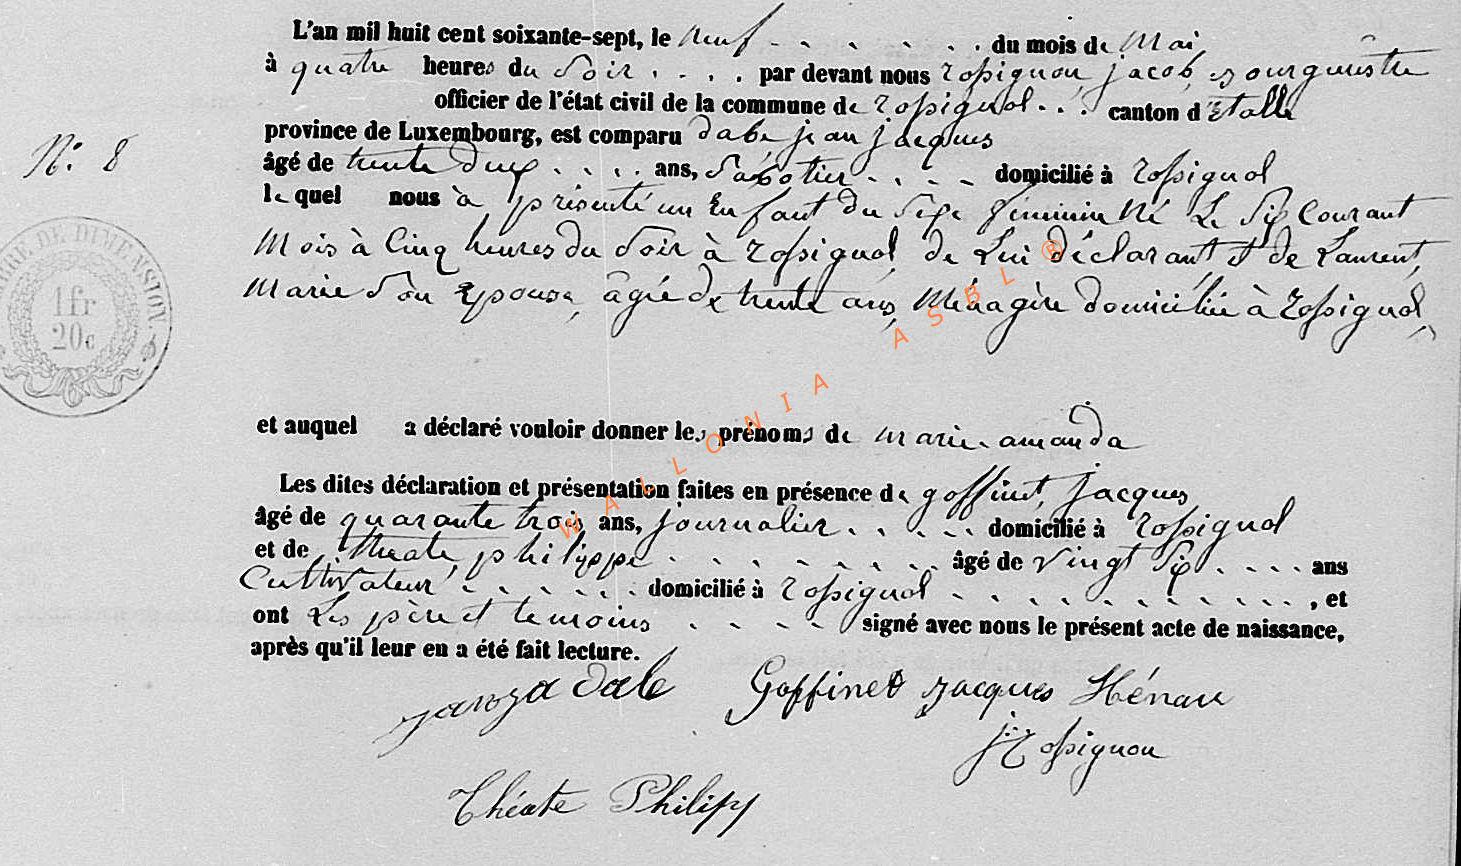 L'an mil huit cent soixante-sept, le neuf du mois de Mai
à quatre heures du Soir par devant nous rossignon jacob, Bourguestre
officier de l'état civil de la commune de rossignol canton d'Etalle
province de Luxembourg, est comparu dabe jean jacques
N.° 8
âgé de trente deux ans, Sabotier domicilié à rossignol
lequel nous à présenté un Enfant du Sexe féminin Né Le Six Courant
Mois à Cinq heures du Soir à rossignol de Lui déclarant et de Laurent
Marie Son Epouse, âgée de trente ans, Ménagère domiciliée à rossignol,
TIMBRE DE DIMENSION.
1 fr
20c
et auquel a déclaré vouloir donner les prénoms de marie. amanda
Les dites déclaration et présentation faites en présence de goffinet, jacques
âgé de quarante trois ans, journalier domicilié à rossignol
et de theate, philippe âgé de vingt Six ans
Cultivateur domicilié à rossignol , et
ont Les père et temoins signé avec nous le présent acte de naissance,
après qu'il leur en a été fait lecture.
dabe Goffinet jacques
j: rossignon
Théate Philipp
WALLONIA ASBL ©